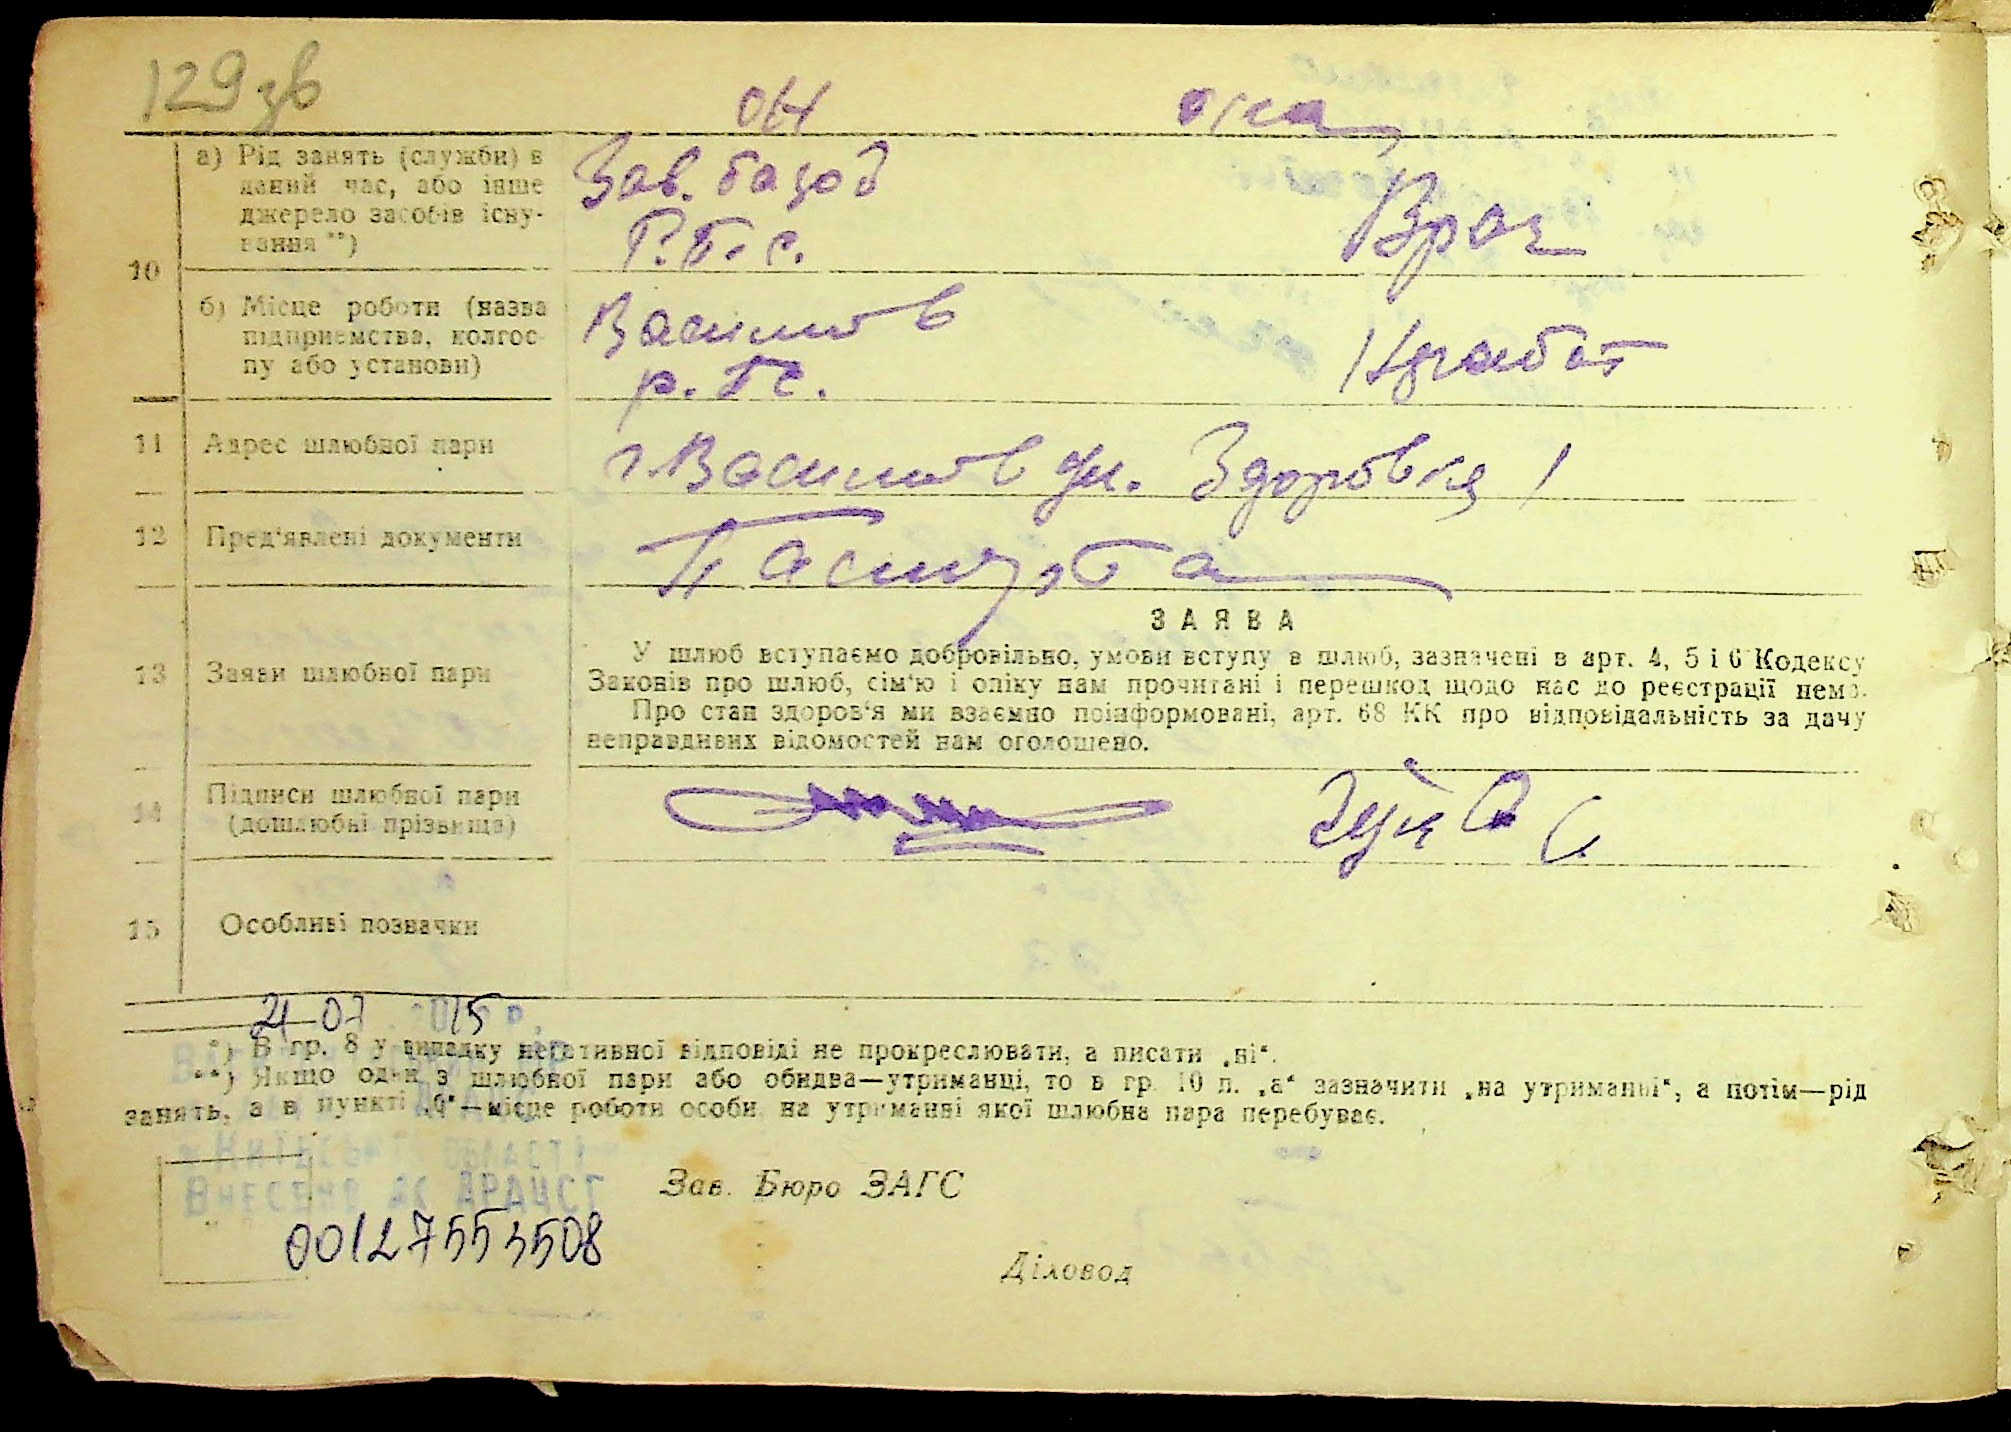 129 зв
он она
10 а) Рід занять (служби) в даний час, або інше джерело засобів існування **)
Зав. базой
Р.П.С.
Врач
б) Місце роботи (назва підприємства, колгоспу або установи)
Васильков
р. ПС.
11 Адрес шлюбної пари
г. Васильков ул. Здоровкя 1
12 Пред'явлені документи
Паспорта
13 Заяви шлюбної пари
ЗАЯВА
У шлюб вступаємо добровільно, умови вступу в шлюб, зазначені в арт. 4, 5 і 6 Кодексу
Законів про шлюб, сім'ю і опіку нам прочитані і перешкод щодо нас до реєстрації нема.
Про стан здоров'я ми взаємно поінформовані, арт. 68 КК про відповідальність за дачу
неправдивих відомостей нам оголошено.
14 Підписи шлюбної пари
(дошлюбні прізвища)
15 Особливі позначки
21 07 2015 р.
*) В гр. 8 у випадку негативної відповіді не прокреслювати, а писати „ні“.
**) Якщо один з шлюбної пари або обидва—утриманці, то в гр. 10 п. „а“ зазначити „на утриманні“, а потім—рід
занять, а в пункті „б“—місце роботи особи, на утриманні якої шлюбна пара перебуває.
Київської області
Внесено до ДРАЦСГ
00127553508
Зав. Бюро ЗАГС
Діловод